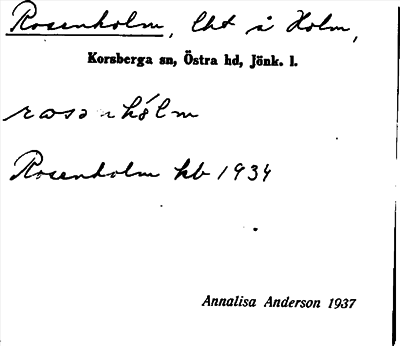 Rosenholm, lht å Holm,
Korsberga sn, Östra hd, Jönk. l.
rosənhólm
Rosenholm kb 1934
Annalisa Anderson 1937